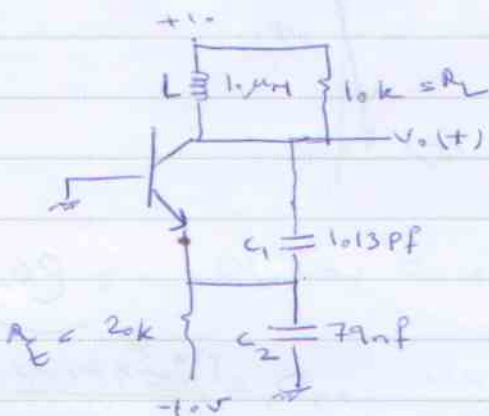 +10
L 10 μH
10k = RL
Vo(t)
C1 1013 pf
RE = 20k
C2 79nf
-10v